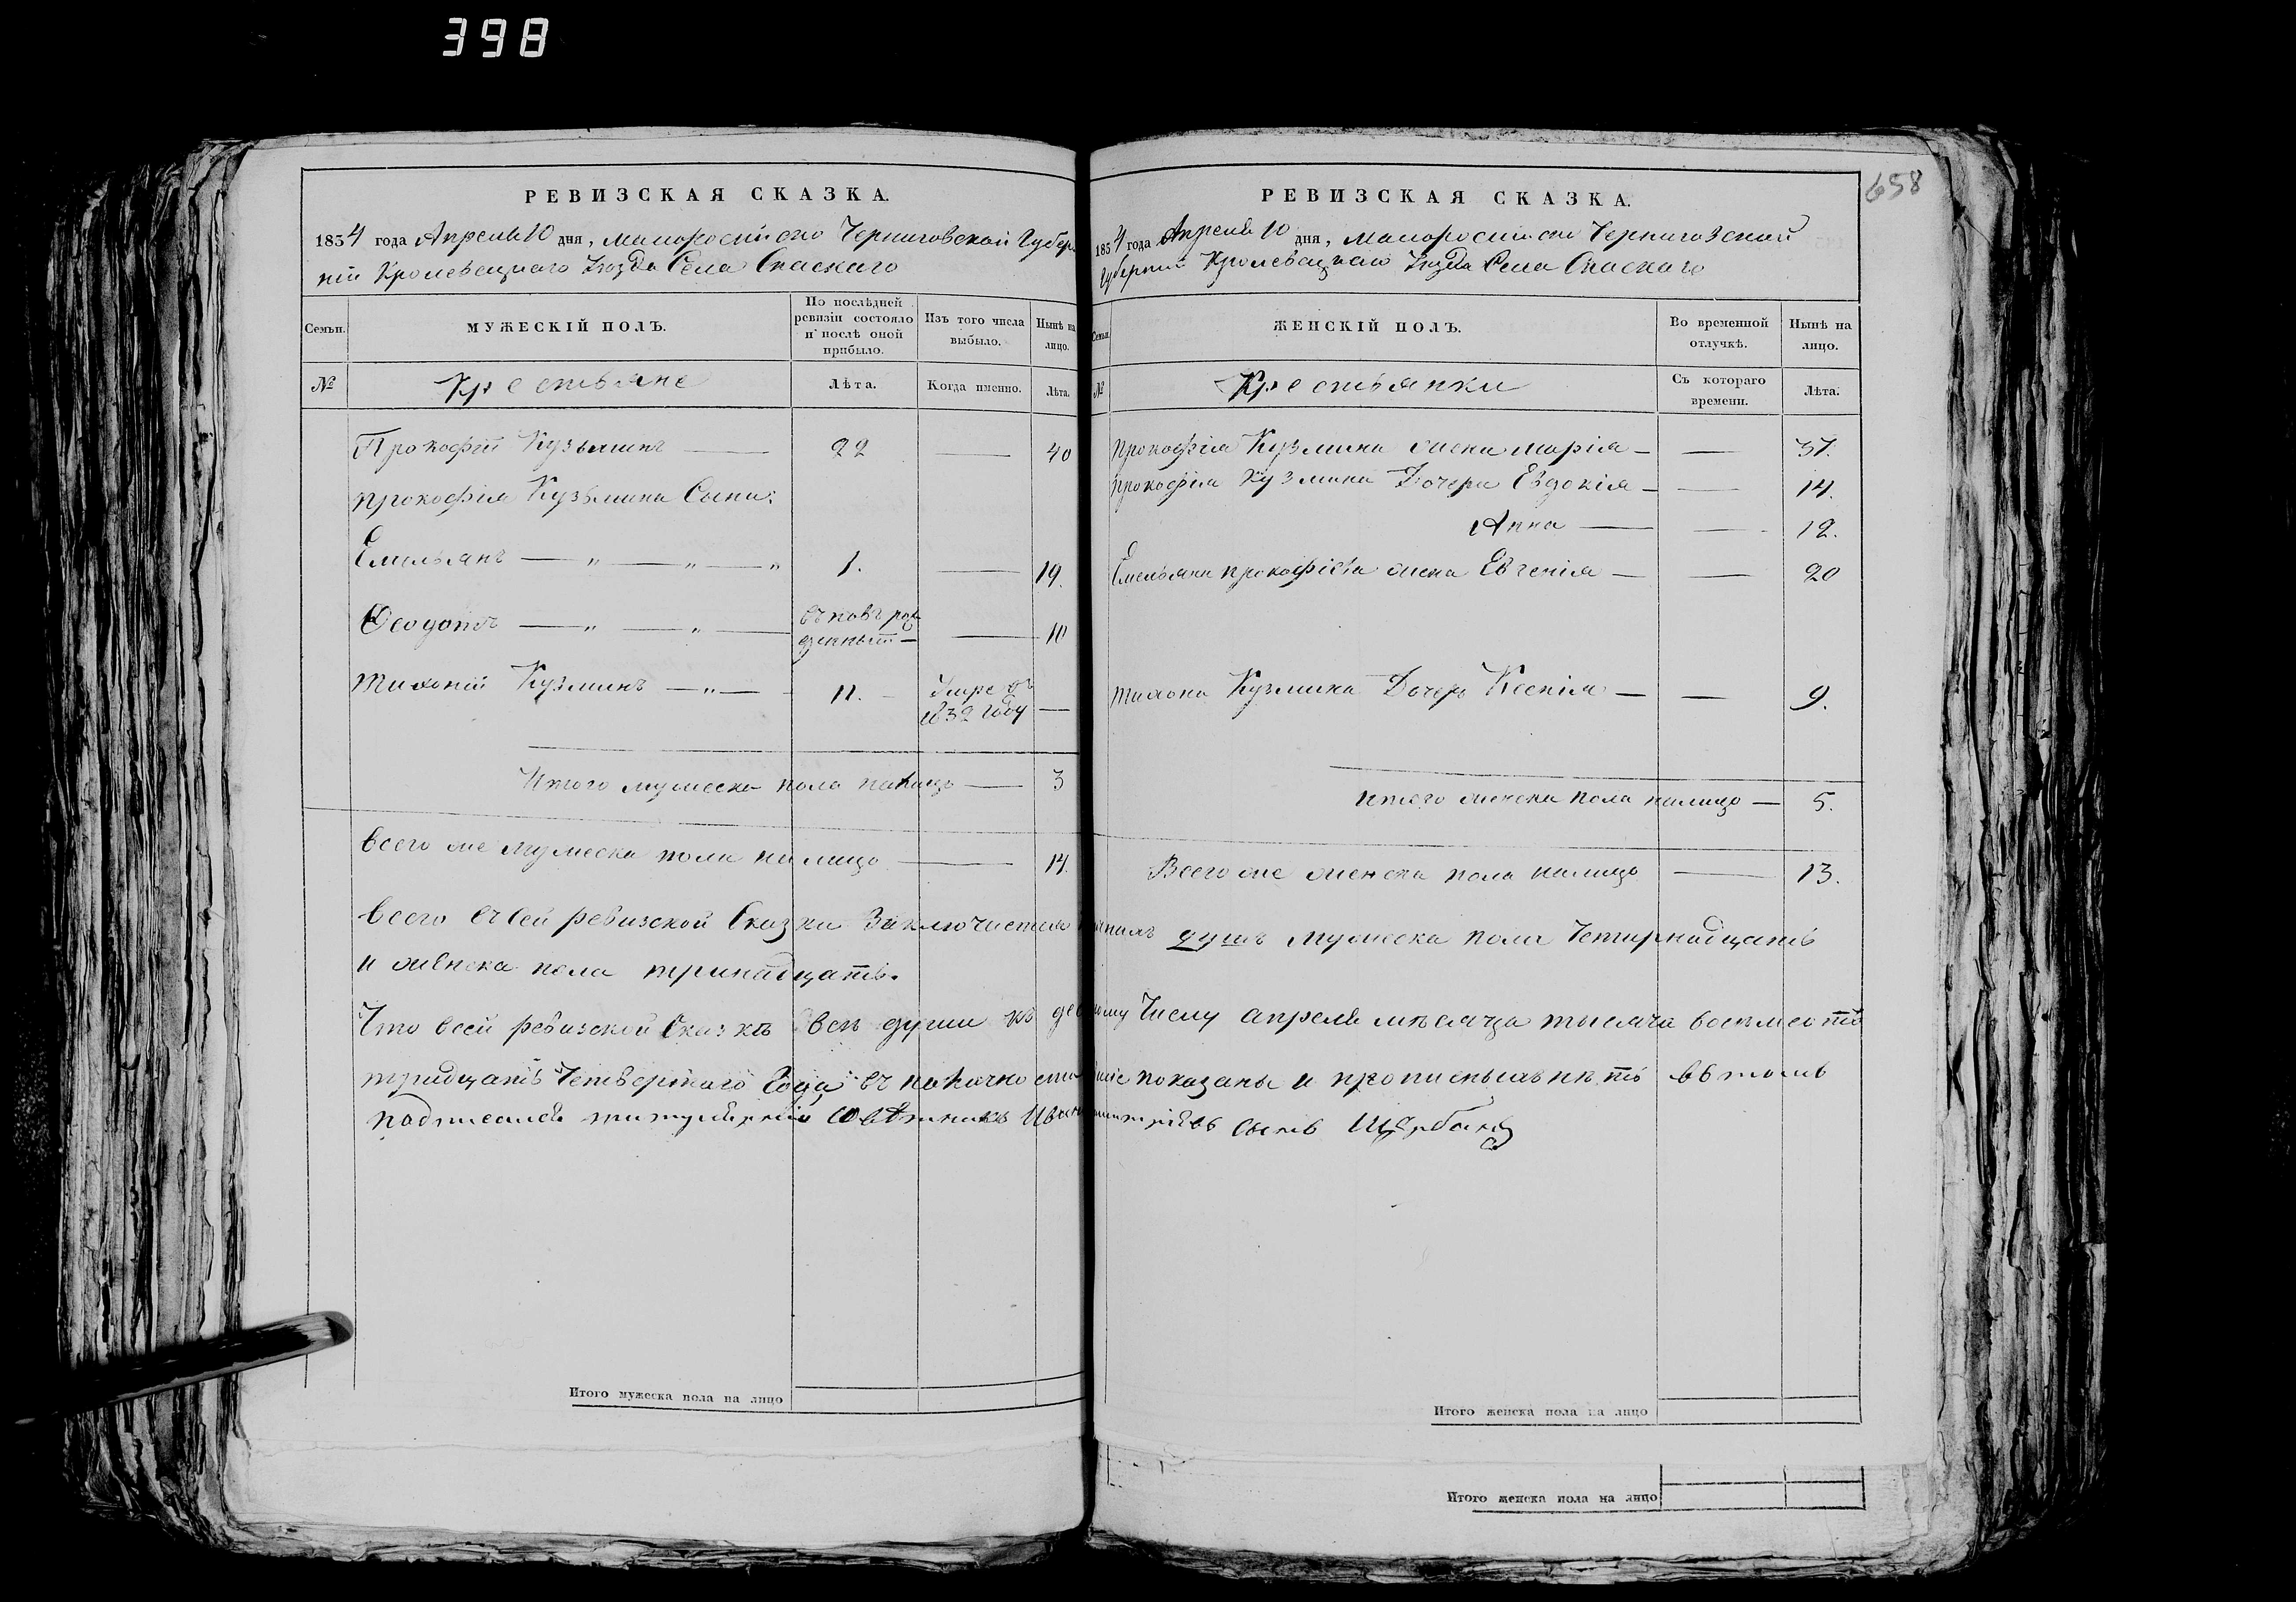 398
658
РЕВИЗСКАЯ СКАЗКА.
1834 года Апреля 10 дня, Малоросійско Черниговской Губер
ніи Кролевецкаго Уѣзда Села Спаскаго
Семьи.
МУЖЕСКІЙ ПОЛЪ.
По послѣдней ревизіи состояло и послѣ оной прибыло.
Изъ того числа выбыло.
Нынѣ на лицо.
№
Крестьяне
Лѣта.
Когда именно.
Лѣта.
Прокофій Кузьминъ — 22 — 40
Прокофія Кузьмина Сыни:
Емельянъ — „ — „ — „ 1. — 19.
Феодотъ — „ — „ — — 10
Тихоній Кузминъ — „ — 11. — Умре въ 1832 Году —
Итого мужеска пола налицо — 3
Всего же мужеска пола налицо — 14.
РЕВИЗСКАЯ СКАЗКА.
1834 года Апреля 10 дня, Малоросійско Черниговской
Губерніи Кролевецкаго Уѣзда Села Спаскаго
Семьи.
ЖЕНСКІЙ ПОЛЪ.
Во временной отлучкѣ.
Нынѣ на лицо.
№
Крестьянки
Съ котораго времени.
Лѣта.
Прокофія Кузмина жена Марія — — 37.
Прокофія Кузмина Дочери Евдокія — — 14.
Анна — — 12.
Емельяна Прокофіева жена Евгенія — — 20
Тихона Кузмина Дочерь Ксенія — — 9.
Итого женска пола налицо — 5.
Всего же женска пола налицо — 13.
Всего въ Сей ревизской Сказки Заключается душъ мужеска пола Четирнадцать
и женска пола тринадцать.
Что в сей ревизской Сказкѣ всѣ души къ Числу апреля мѣсяца тысяча восемсотъ
тридцать Четвертаго Года въ показаны и въ томъ
подписался титулярній Совѣтникъ сынъ Щербакъ
Итого мужеска пола на лицо
Итого женска пола на лицо
Итого женска пола на лицо